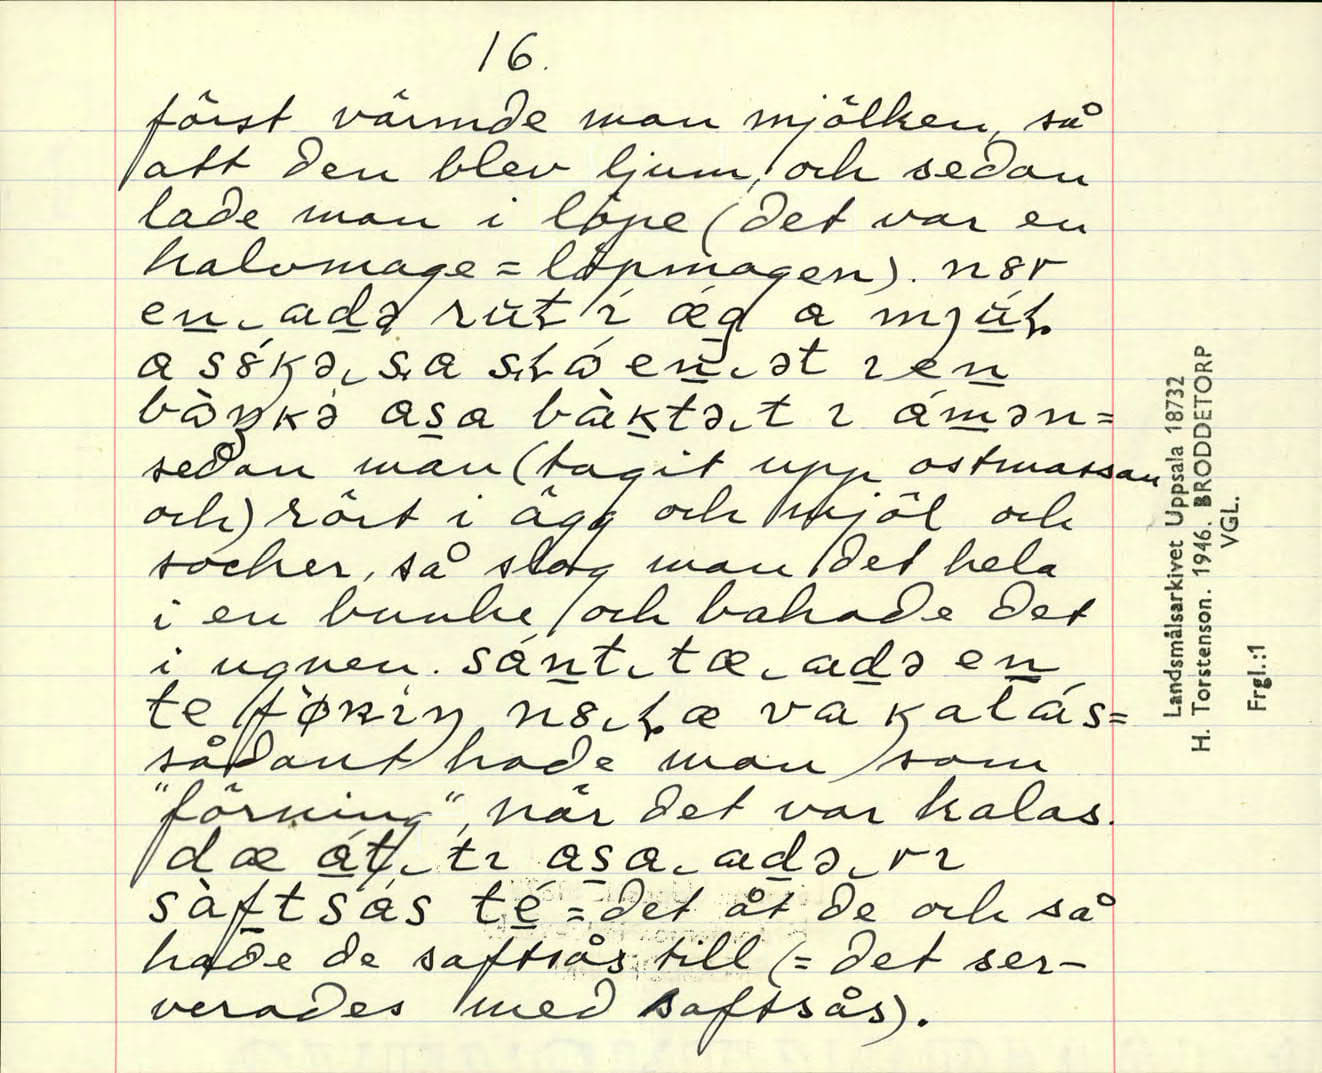 16.
först värmde man mjölken, så
att den blev ljum, och sedan
lade man i löpe (det var en
kalvmage = löpmagen). nȣr
en adə rūt í ǽg a mjúł
a sȣ́kə, sa słɷ́ en ət ı en
bɷ̀ŋkə̀ asa bàktə t ı ámən =
sedan man (tagit upp ostmassan
och) rört i ägg och mjöl och
socker, så slog man det hela
i en bunke och bakade det
i ugnen. sánt tæ adə en
te fø̀nıŋ nȣ ł æ va kalás =
sådant hade man som
"förning", när det var kalas.
dæ át tı asa adə vı
sàftsás té = det åt de och så
hade de saftsås till (= det ser-
verades med saftsås).
Landsmålsarkivet Uppsala 18732
H. Torstenson. 1946. BRODDETORP
VGL.
Frgl.:1